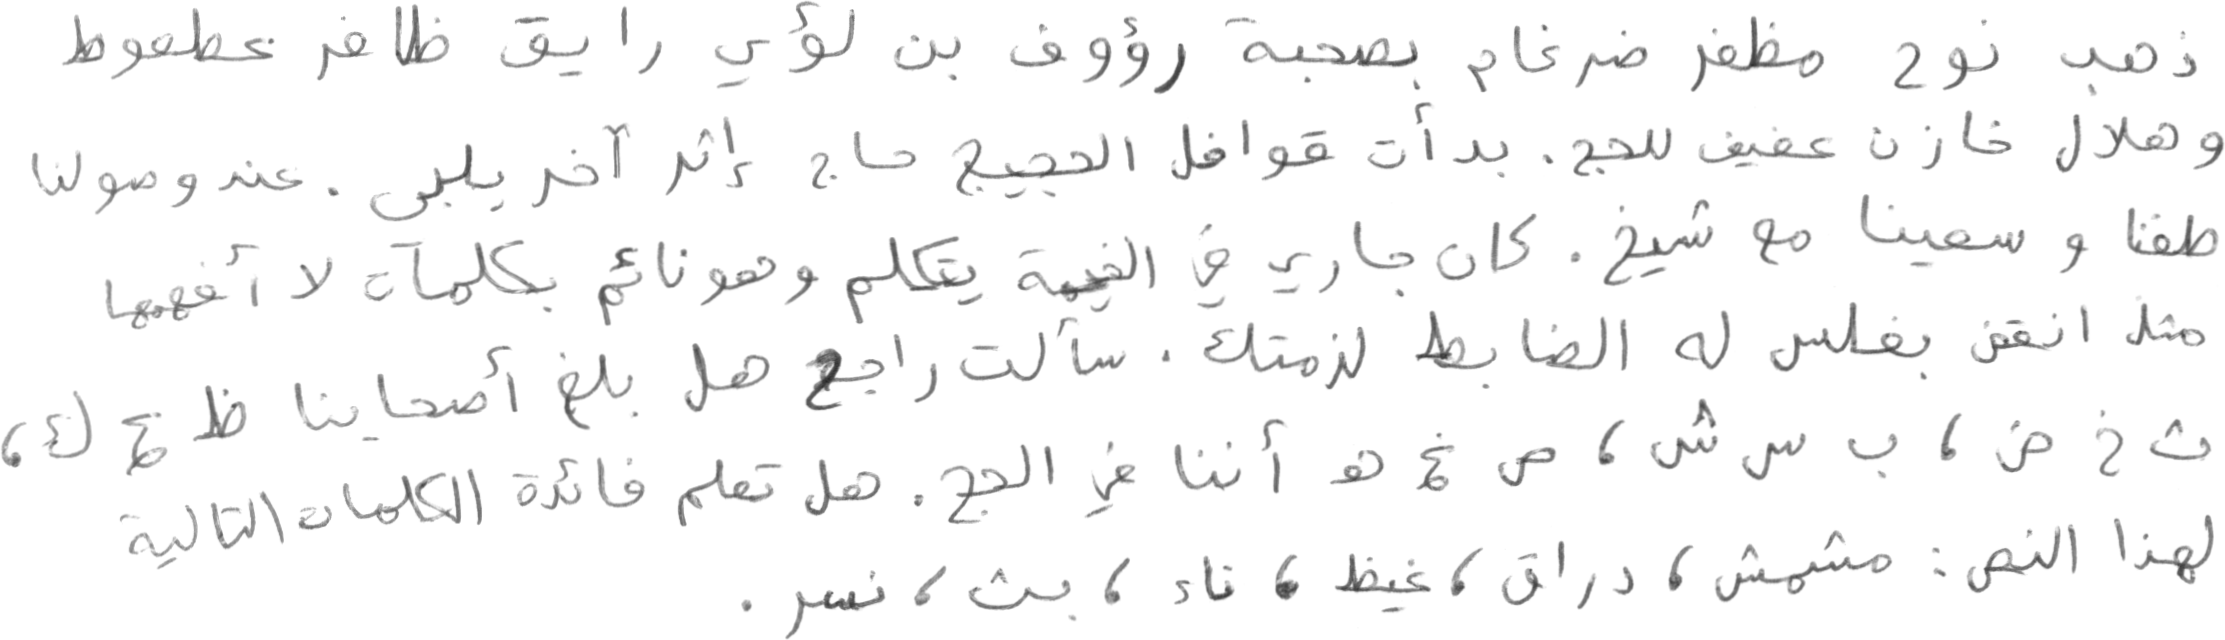 ذهب نوح مظفر ضرغام بصحبة رؤوف بن لؤي رايق ظافر عطعوط
وهلال خازن عفيف للحج. بدأت قوافل الحجيج حاج إثر آخر يلبي. عند وصولنا
طفنا و سعينا مع شيخ. كان جاري في الخيمة يتكلم وهو نائم بكلمات لا أفهمها
مثل انقض بفلس له الضابط لزمتك. سألت راجح هل بلغ أصحابنا ظ ج ك،
ث خ ض، ب س ش، ص غ هـ أننا في الحج. هل تعلم فائدة الكلمات التالية
لهذا النص: مشمش، دراق، غيظ، ناء، بث، نسر.